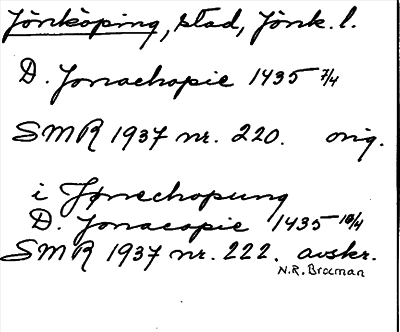 Jönköping, stad, Jönk. l.
D. Jonachopie 1435 7/4
SMR 1937 nr. 220. orig.
i Jønechopung
D. Jonacopie 1435 18/4
SMR 1937 nr. 222. avskr.
N.R. Brocman